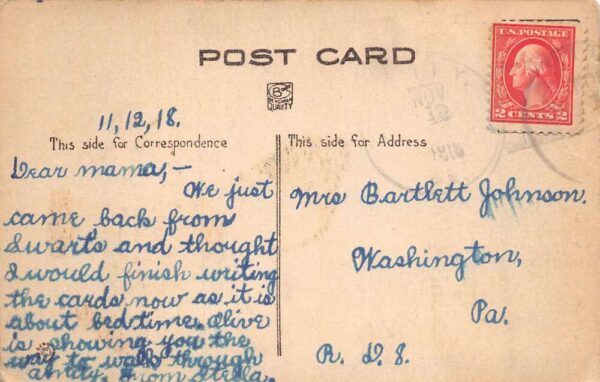 POST CARD
U.S. POSTAGE
2 CENTS 2
QUALITY
11, 12, 18.
This side for Correspondence
This side for Address
Dear mama,—
We just
came back from
Swarts and thought
I would finish writing
the cards now as it is
about bedtime. Olive
is showing you the
way to walk through
From Stella.
Mrs Bartlett Johnson.
Washington,
Pa.
NOV
1918